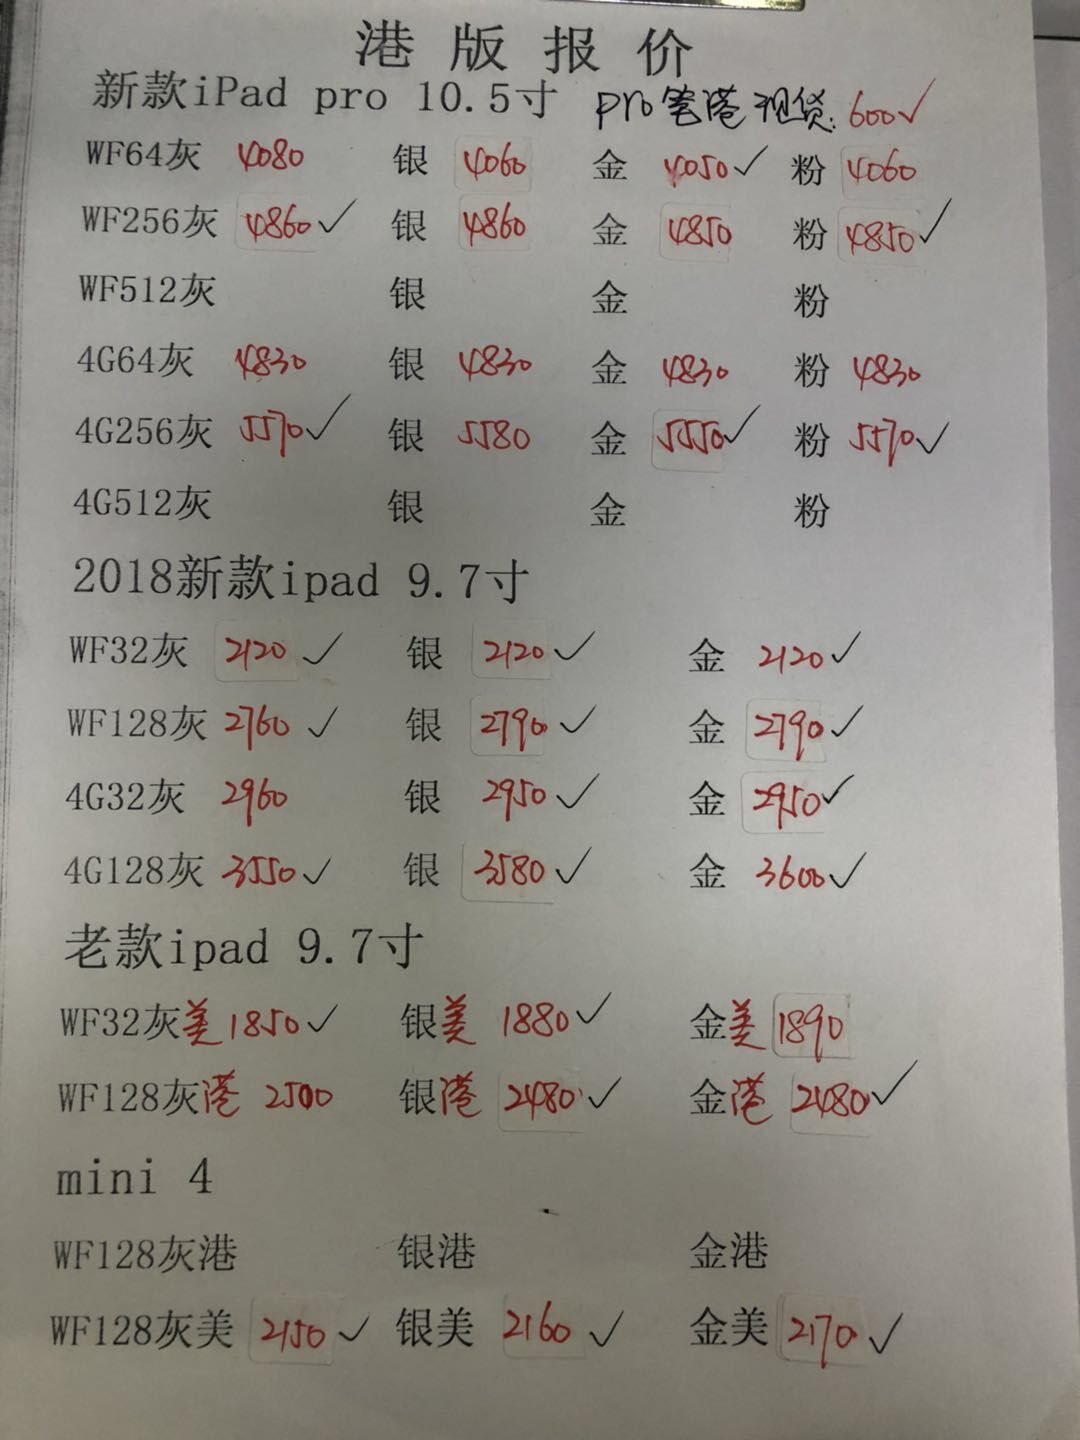 港版报价
新款iPad pro 10.5寸 pro笔港现货:600✓
WF64灰 4080 银 4060 金 4050✓ 粉 4060
WF256灰 4860✓ 银 4860 金 4850 粉 4850✓
WF512灰 银 金 粉
4G64灰 4830 银 4830 金 4830 粉 4830
4G256灰 5570✓ 银 5580 金 5550✓ 粉 5570✓
4G512灰 银 金 粉
2018新款ipad 9.7寸
WF32灰 2120✓ 银 2120✓ 金 2120✓
WF128灰 2760✓ 银 2790✓ 金 2790✓
4G32灰 2960 银 2950✓ 金 2950✓
4G128灰 3550✓ 银 3580✓ 金 3600✓
老款ipad 9.7寸
WF32灰美 1850✓ 银美 1880✓ 金美 1890
WF128灰港 2500 银港 2480✓ 金港 2480✓
mini 4
WF128灰港 银港 金港
WF128灰美 2150✓ 银美 2160✓ 金美 2170✓